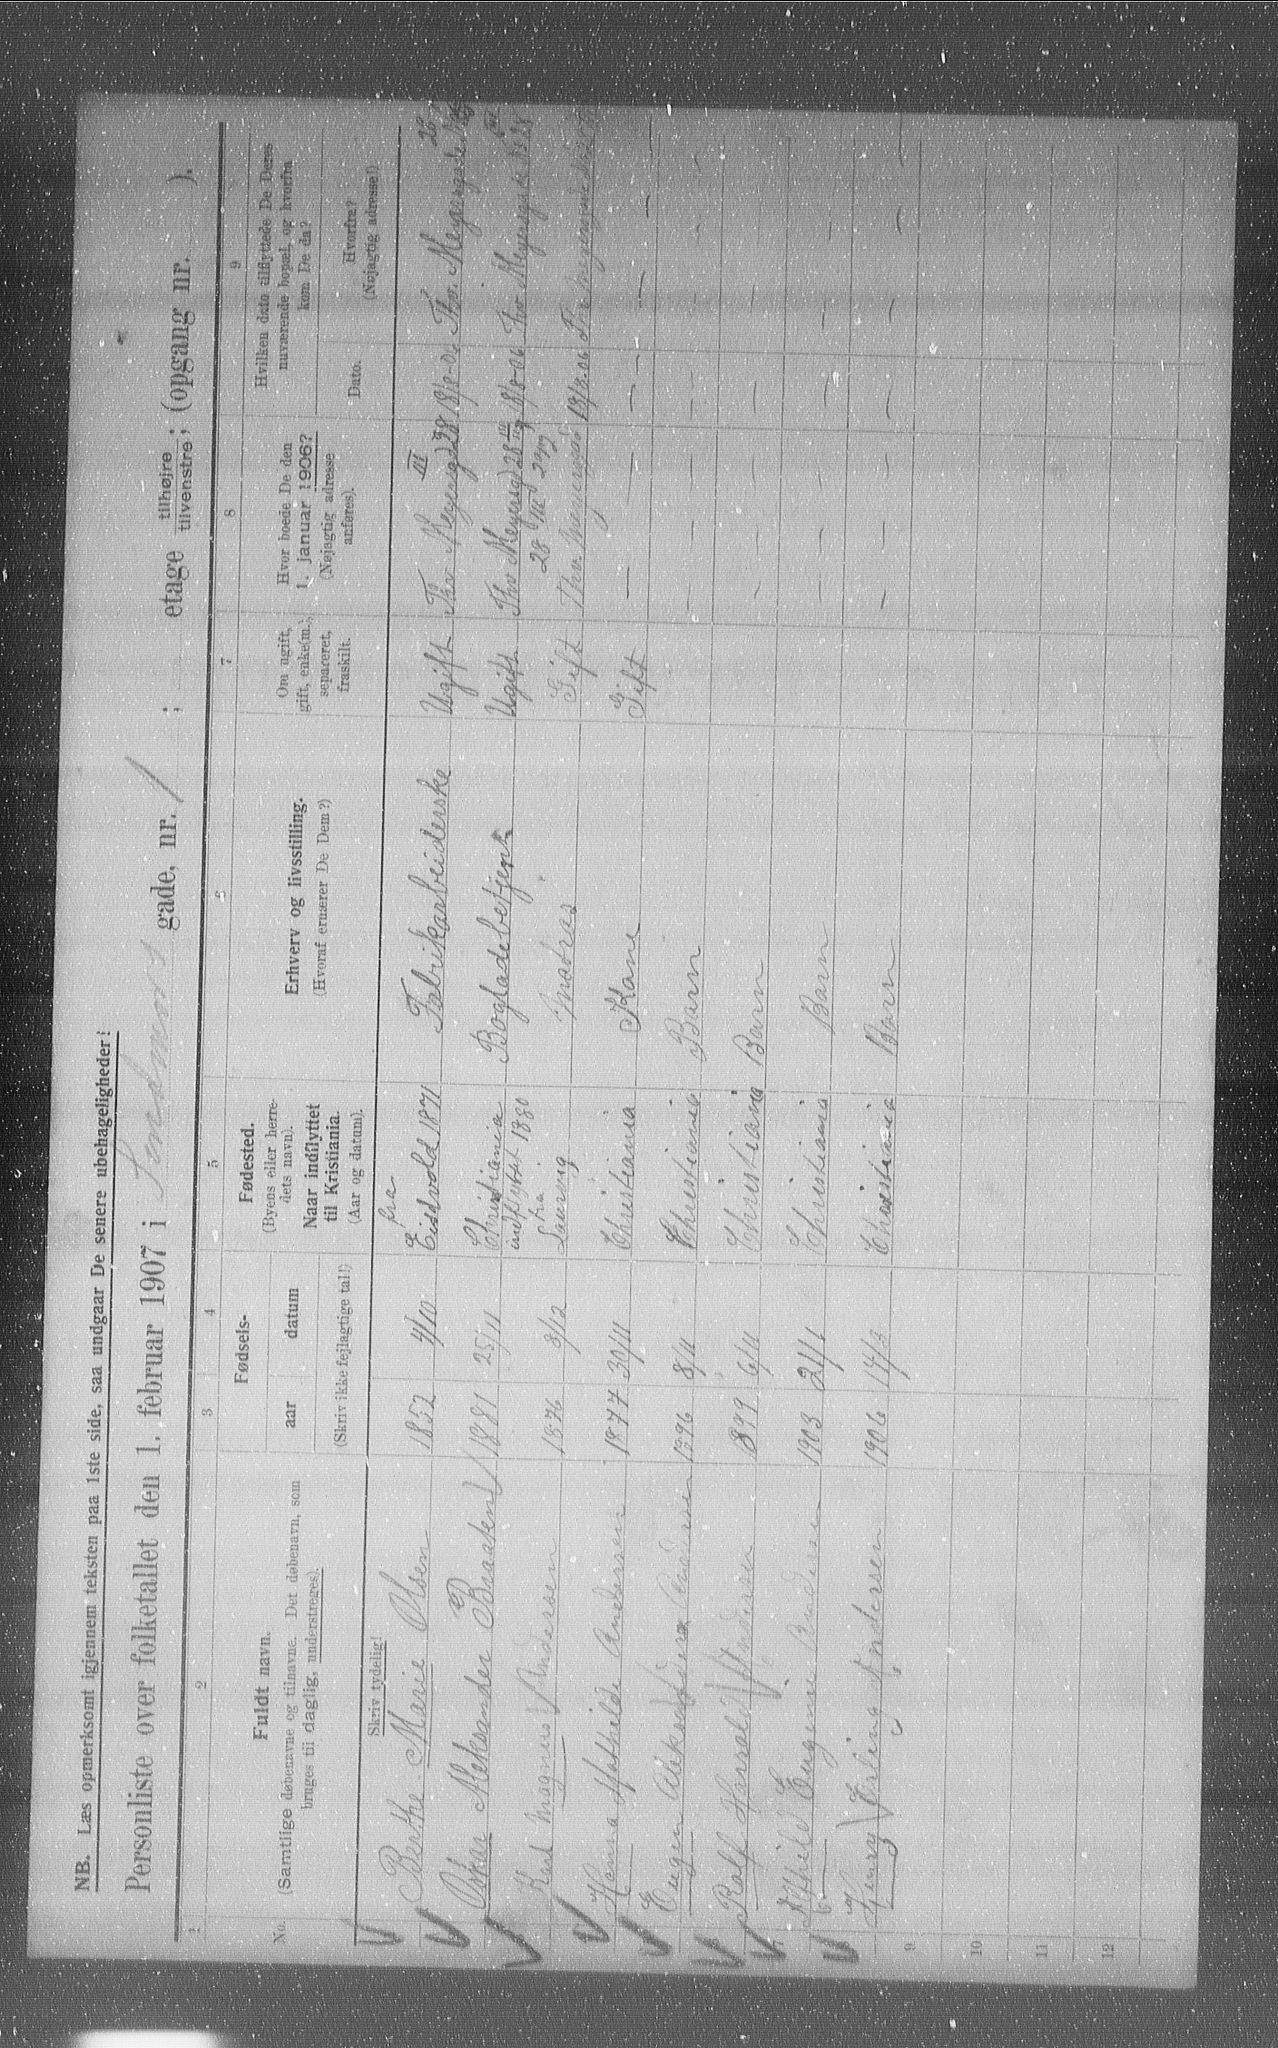 NB. Læs opmerksomt igjennem teksten paa 1ste side, saa undgaar De senere ubehageligheder!
Personliste over folketallet den 1. februar 1907 i Sandmos gade, nr. 1 ; etage tilhøjre tilvenstre; (opgang nr. ).
1 2 3 4 5 6 7 8 9
No.
Fuldt navn.
(Samtlige døbenavne og tilnavne. Det døbenavn, som
bruges til daglig, understreges).
Fødsels-
aar datum
Fødested.
(Byens eller herre-
dets navn).
Naar indflyttet
til Kristiania.
(Aar og datum).
Erhverv og livsstilling.
(Hvoraf ernærer De Dem?)
Om ugift,
gift, enke(m.),
separeret,
fraskilt.
Hvor boede De den
1. januar 1906?
(Nøjagtig adresse
anføres).
Hvilken dato tilflyttede De Deres
nuværende bopæl, og hvorfra
kom De da?
Dato.
Hvorfra?
(Nøjagtig adresse!)
Skriv tydelig!
(Skriv ikke fejlagtige tal!)
Berthe Marie Olsen 1852 4/10 fra Eidsvold 1871 Fabrikarbeiderske Ugift Thv. Meyersgd 28 III 18/8-06 Thv. Meyersgade 28
Oskar Aleksander Braaten 1881 25/11 Christiania Bogladebetjent Ugift Thv Meyersgd 28 III 18/8-06 Thv Meyersgade 28
indflyttet 1880 28 III
Karl Magnus Andersen 1876 8/12 fra Laurvig Gift Thv. Meyersgd 18/8-06 Thv Meyersgade
Hanna Mathilde Andersen 1877 30/11 Christiania Kone Gift — — — — —
Eugen Aleksander Andersen 1896 8/11 Christiania Barn — — — — —
Rolf Harald Andersen 1899 6/11 Christiania Barn — — — — —
Eugenie Andersen 1903 21/1 Christiania Barn — — — — —
Henry Erling Andersen 1906 14/3 Christiania Barn — — — — —
9
10
11
12